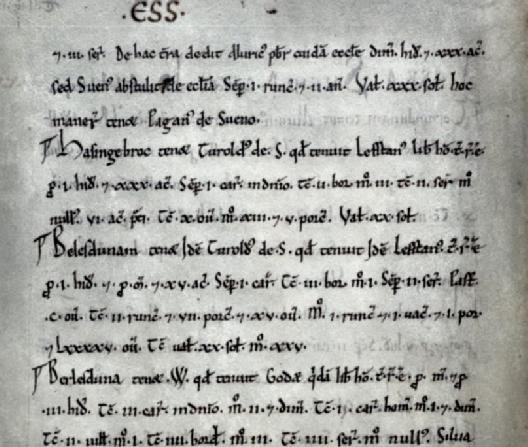 ·ESS·
7. iii. ser̄. De hac t̄ra dedit Aluric' p̄br cuidā eccłe dim̄. hid̄. 7. xxx. ac̄.
sed Suen' abstulit de eccłia. Sēp. i. runc̄. 7. ii. an̄. Vał. xxx. soł. hoc
maner̄ tenet Pagan' de Sueno.
Hasingebroc tenet Turold' de. S. qd̄ tenuit Leffstan' lib hō. t̄. r̄. e.
ꝓ. i. hid̄. 7. xxx. ac̄. Sēp. i. car̄. in dn̄io. tc̄. ii. bor. m̄. iii. tc̄. ii. ser̄. m̄
null'. vi. ac̄. p̄ti. Tc̄. x. ou̅. m̊. xiii. 7. v. porc̄. Vał. xx. soł.
Belesdunam tenet Idē Turold' de. S. qd̄ tenuit Idē Leffstan'. t̄. r̄. e.
ꝓ. i. hid̄. 7. ꝓ. 7. xv. ac̄. Sēp. i. car̄. Tc̄. iii. bor. m̊. i. Sēp. ii. ser̄. Past.
.c. ou̅. Tc̄. ii. runc̄. 7. vii. porc̄. 7. xv. ou̅. m̊. i. runc̄. 7. i. uac̄. 7. i. por.
7 Lxxxxv. ou̅. Tc̄ uał. xx. soł. m̊. xxv.
Berlesduna tenet. W. qd̄ tenuit Godæ qđā lib hō. t̄. r̄. e. ꝓ. m̄. 7 ꝓ
.iii. hid̄. Tc̄. iii. car̄. in dn̄io. m̊. ii. 7. dim̄. Tc̄. i. car̄. hom̄. m̊. i. 7. dim̄.
Tc̄. ii. uilł. m̊. i. Tc̄. iiii. bord̄. m̊. iii. Tc̄ iiii. ser̄. m̊ null'. Silua